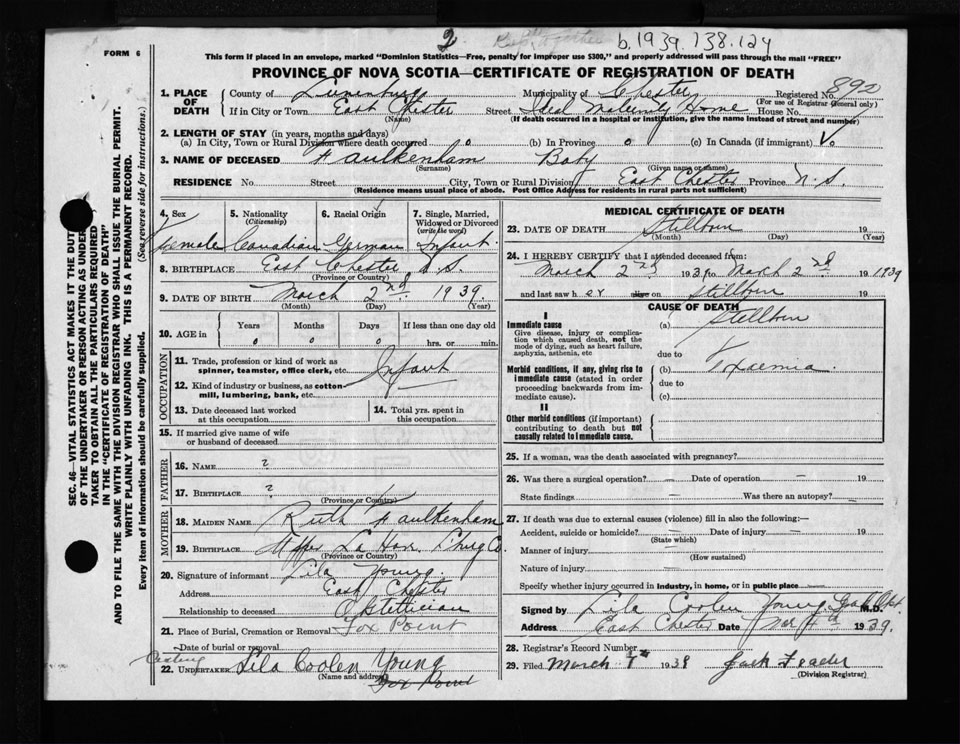 FORM 6
2
b.1939.738.124
This form if placed in an envelope, marked "Dominion Statistics—Free, penalty for improper use $300," and properly addressed will pass through the mail "FREE"
PROVINCE OF NOVA SCOTIA—CERTIFICATE OF REGISTRATION OF DEATH
1. PLACE OF DEATH
County of Lunenburg Municipality of Chester Registered No. 892
(For use of Registrar General only)
If in City or Town East Chester Street Ideal Maternity Home House No.
(Name) (If death occurred in a hospital or institution, give the name instead of street and number)
2. LENGTH OF STAY (in years, months and days)
(a) In City, Town or Rural Division where death occurred 0 (b) In Province 0 (c) In Canada (if immigrant) 0
3. NAME OF DECEASED Faulkenham Baby
(Surname) (Given name or names)
RESIDENCE No. Street City, Town or Rural Division East Chester Province N.S.
(Residence means usual place of abode. Post Office Address for residents in rural parts not sufficient)
SEC. 46—VITAL STATISTICS ACT MAKES IT THE DUTY
OF THE UNDERTAKER OR PERSON ACTING AS UNDER-
TAKER TO OBTAIN ALL THE PARTICULARS REQUIRED
IN THE "CERTIFICATE OF REGISTRATION OF DEATH"
AND TO FILE THE SAME WITH THE DIVISION REGISTRAR WHO SHALL ISSUE THE BURIAL PERMIT.
WRITE PLAINLY WITH UNFADING INK. THIS IS A PERMANENT RECORD.
Every item of information should be carefully supplied. (See reverse side for instructions.)
4. Sex 5. Nationality (Citizenship) 6. Racial Origin 7. Single, Married, Widowed or Divorced (write the word)
Female Canadian German Infant
8. BIRTHPLACE East Chester N.S.
(Province or Country)
9. DATE OF BIRTH March 2nd 1939.
(Month) (Day) (Year)
10. AGE in Years Months Days If less than one day old
0 0 0 hrs. or min.
OCCUPATION
11. Trade, profession or kind of work as spinner, teamster, office clerk, etc. Infant
12. Kind of industry or business, as cotton-mill, lumbering, bank, etc.
13. Date deceased last worked at this occupation
14. Total yrs. spent in this occupation
15. If married give name of wife or husband of deceased
FATHER
16. NAME ?
17. BIRTHPLACE ?
(Province or Country)
MOTHER
18. MAIDEN NAME Ruth Faulkenham
19. BIRTHPLACE Upper La Have Lbug Co.
(Province or Country)
20. Signature of informant Lila Young.
Address East Chester
Relationship to deceased Obstetician
21. Place of Burial, Cremation or Removal Fox Point
Date of burial or removal
22. UNDERTAKER Lila Coolen Young
(Name and address) Fox Point
MEDICAL CERTIFICATE OF DEATH
23. DATE OF DEATH Stillborn 19
(Month) (Day) (Year)
24. I HEREBY CERTIFY that I attended deceased from:
March 2nd 193 to March 2nd 1939
and last saw h er alive on Stillborn 19
CAUSE OF DEATH
I
Immediate cause (a) Stillborn
Give disease, injury or complication which caused death, not the mode of dying, such as heart failure, asphyxia, asthenia, etc
due to
Morbid conditions, if any, giving rise to immediate cause (stated in order proceeding backwards from immediate cause). (b) Toxaemia.
due to
(c)
II
Other morbid conditions (if important) contributing to death but not causally related to immediate cause.
25. If a woman, was the death associated with pregnancy?
26. Was there a surgical operation? — Date of operation — 19
State findings — Was there an autopsy? —
27. If death was due to external causes (violence) fill in also the following:—
Accident, suicide or homicide? — Date of injury — 19
(State which)
Manner of injury —
(How sustained)
Nature of injury —
Specify whether injury occurred in industry, in home, or in public place —
Signed by Lila Coolen Young M.D.
Address East Chester Date Mar 4th 1939.
28. Registrar's Record Number
29. Filed March 1938 Jack Feader
(Division Registrar)